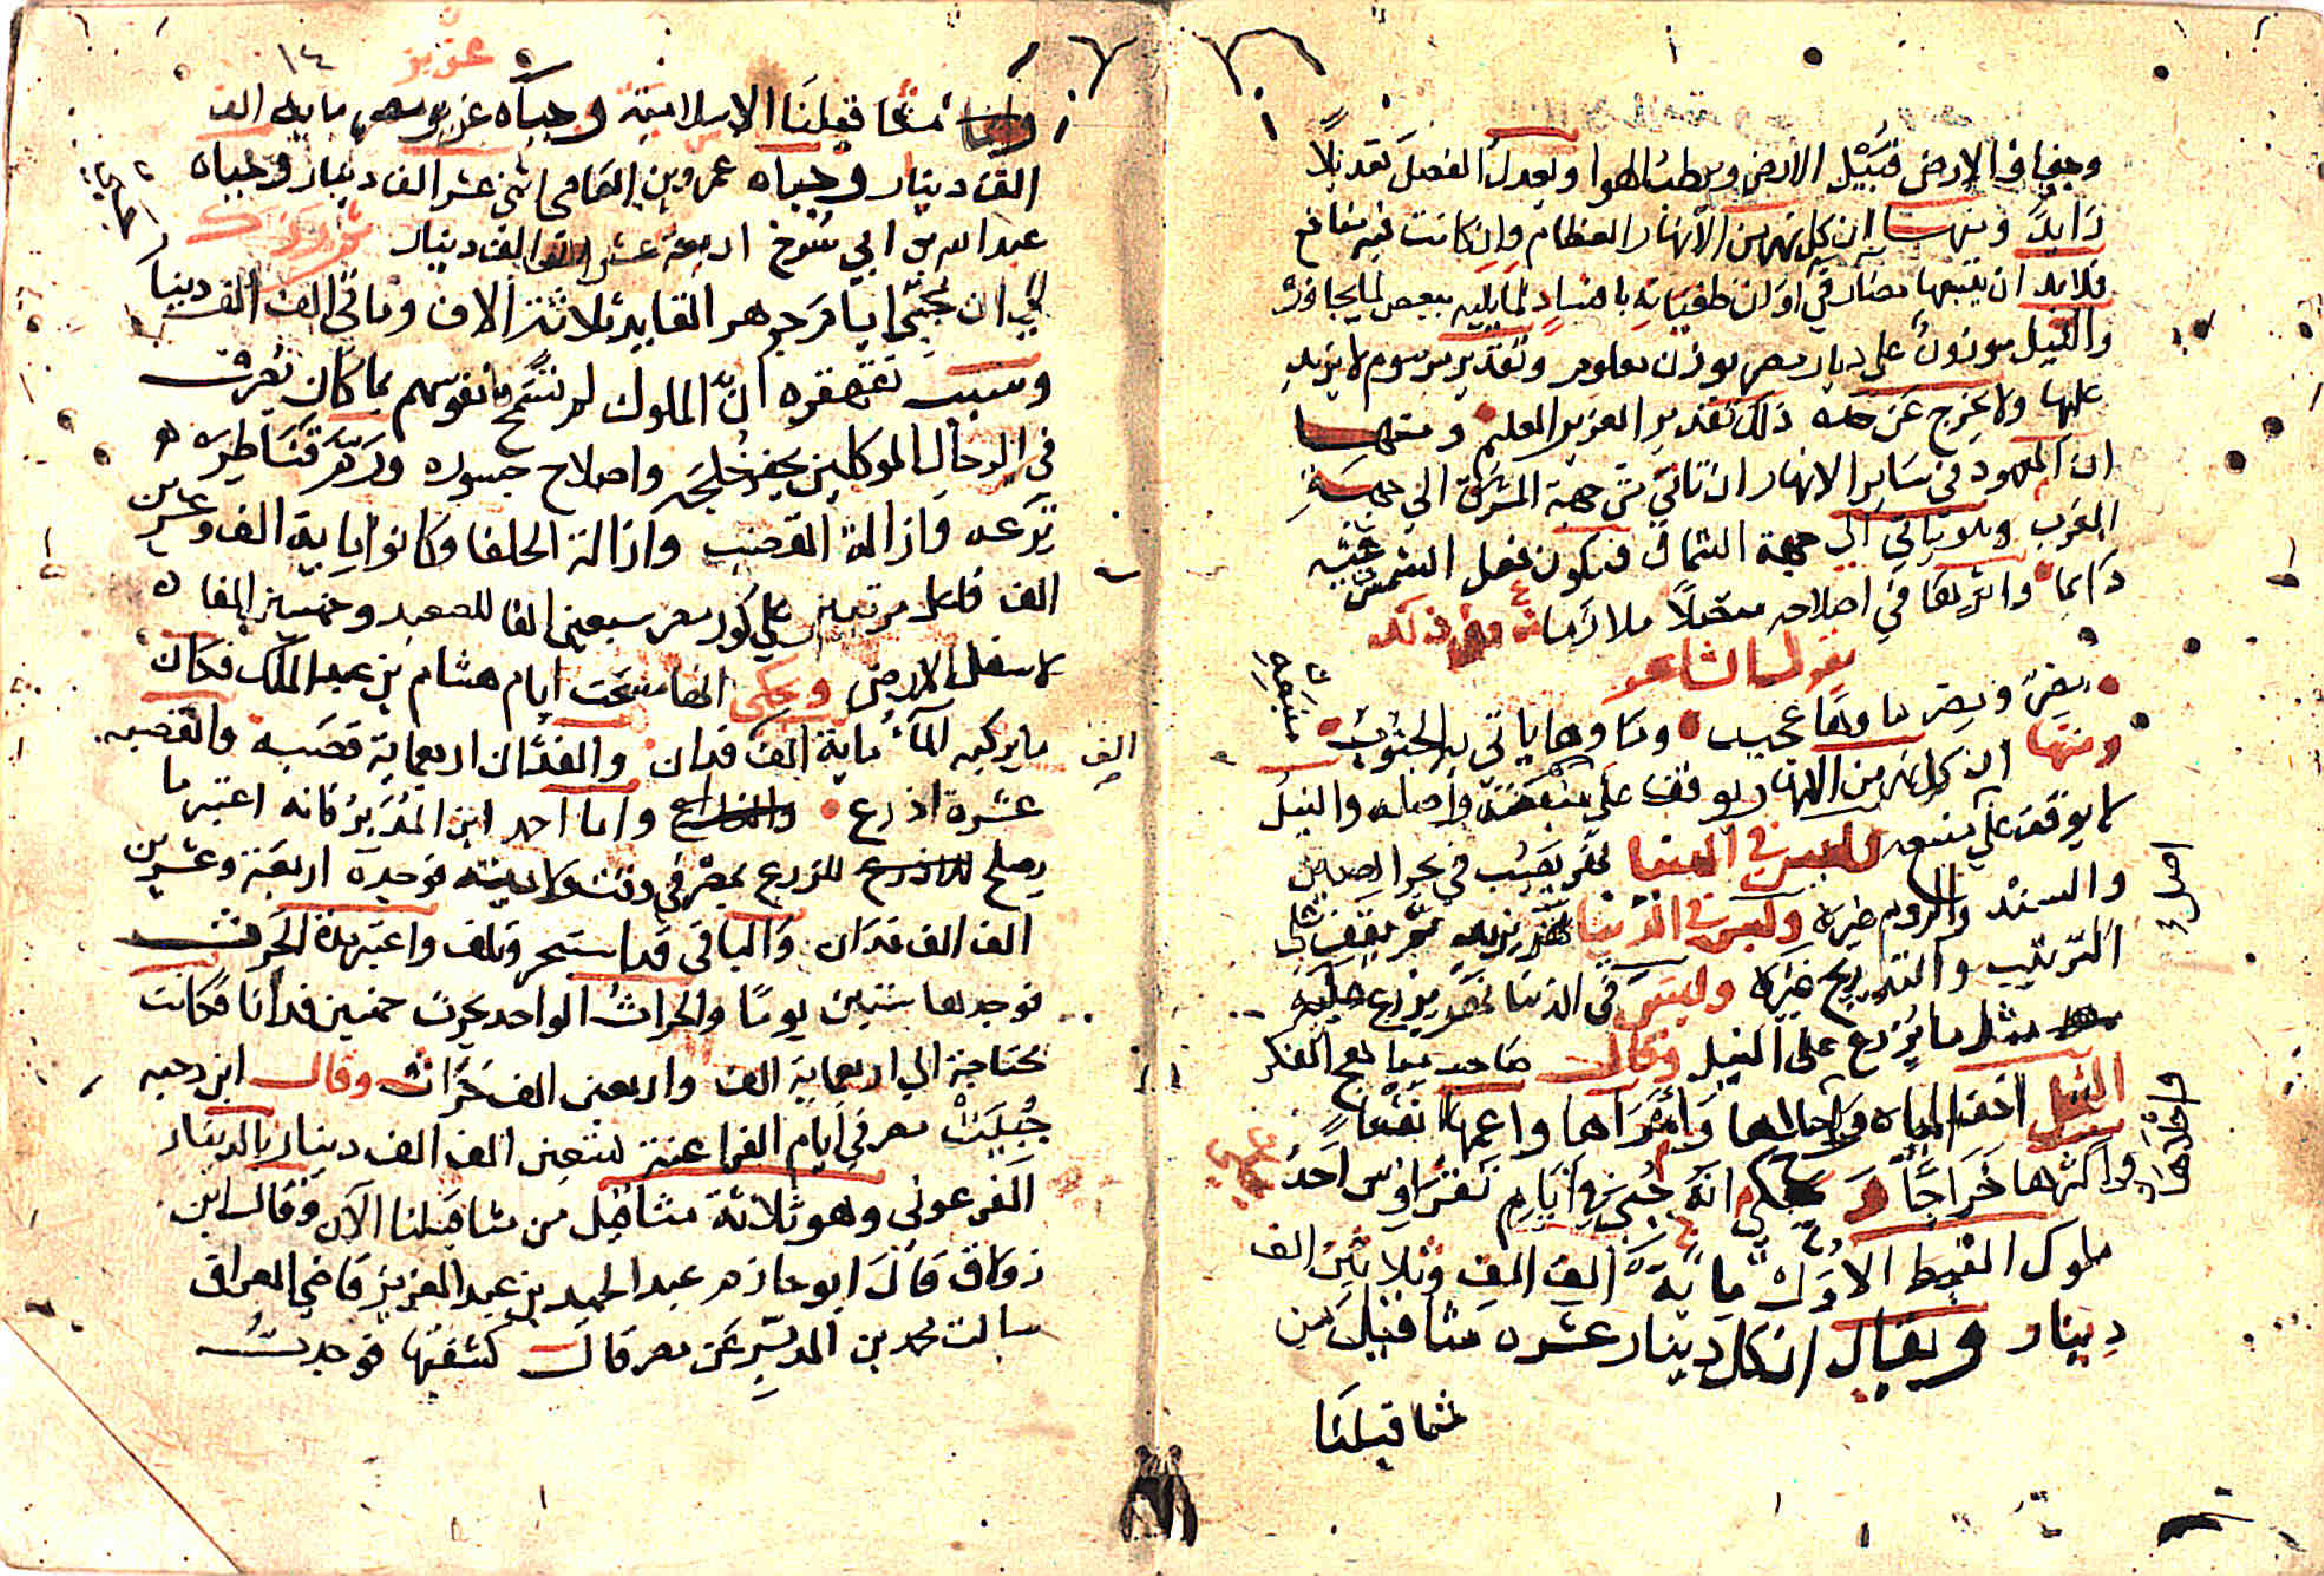 وجفاف الارض فيبل الارض ويرطب الهوا ويعدل الفصل تعديلًا
زايدًا ومنها ان كل نهر من الانهار العظام وان كانت فيه منافع
فلابد ان يتبعها مضار في اوان طغيانه بافساد ما يليه ببعض ما يجاوره
والنيل موزون على ديار مصر بوزن معلوم وتقدير مرسوم لا يزيد
عليها ولا يخرج عن حده ذلك تقدير العزيز العليم ومنها
ان المعهود في ساير الانهار ان تاتي من جهة المشرق الى جهة
المغرب وهو ياتي الى جهة الشمال فيكون فعل الشمس فيه
دايما واثرها في اصلاحه متصلًا ملازما وفي ذلك
يقول الشاعر
بمصر ومصر ماوها عجيب وماوها ياتي به الجنوب
ومنها ان كل نهر من الانهار يوقف على منبعه واصله والنيل
لا يوقف على منبعه وليس في الدنيا نهر يصب في بحر الصين
والسند والروم غيره وليس في الدنيا نهر يزيد ثم يقف على
الترتيب والتدريج غيره وليس في الدنيا نهر يزرع عليه
مثل ما يزرع على النيل وقال صاحب مباهج الفكر
النيل اخف المياه واحلاها وامراها واعمها نفعا
واكثرها خراجًا وحكي انه جبي في ايام نقراوس احد
ملوك القبط الاول ماية الف الف وثلاثين الف
دينار ويقال ان كل دينار عشره مثاقيل من
مثاقيلنا
منبعه
اصل
عزيز
١٤
مثاقيلنا الاسلامية وجباه عزيز مصر ماية الف
الف دينار وجباه عمرو بن العاصي اثني عشر الف دينار وجباه
عبد الله بن ابي سرح اربعة عشر الف الف دينار
الى ان جبي ايام جوهر القايد ثلاثة الاف ومائتي الف الف دينار
وسبب تقهقره ان الملوك لم تسمح نفوسهم بما كان يعرف
في الرجال الموكلين بحفر خليجه واصلاح جسوره ورم قناطره
ترعه وازالة القصب وازالة الحلفا وكانوا ماية الف وعشرين
الف فاعل مرتبين على كور مصر سبعين الفا للصعيد وخمسين الفا
لاسفل الارض وحكى انها مسحت ايام هشام بن عبد الملك فكان
ما يركبه الماء ماية الف فدان والفدان اربعماية قصبه والقصبه
الف
عشرة اذرع واما احمد ابن المدبر فانه اعتبر ما
يصلح للزرع بمصر في وقت ولايته فوجده اربعة وعشرين
الف الف فدان والباقي قد استبحر وتلف واعتبر مدة الحرث
فوجدها ستين يومًا والحراث الواحد يحرث خمسين فدانا فكانت
محتاجة الى اربعماية الف واربعين الف حراث وقال ابن دحيه
جبيت مصر في ايام الفراعنة تسعين الف الف دينار بالدينار
الفرعوني وهو ثلاثة مثاقيل من مثاقيلنا الآن وقال ابن
زولاق قال ابو حازم عبد الحميد بن عبد العزيز قاضي العراق
سالت محمد بن المدبر عن مصر قال كشفتها فوجدت